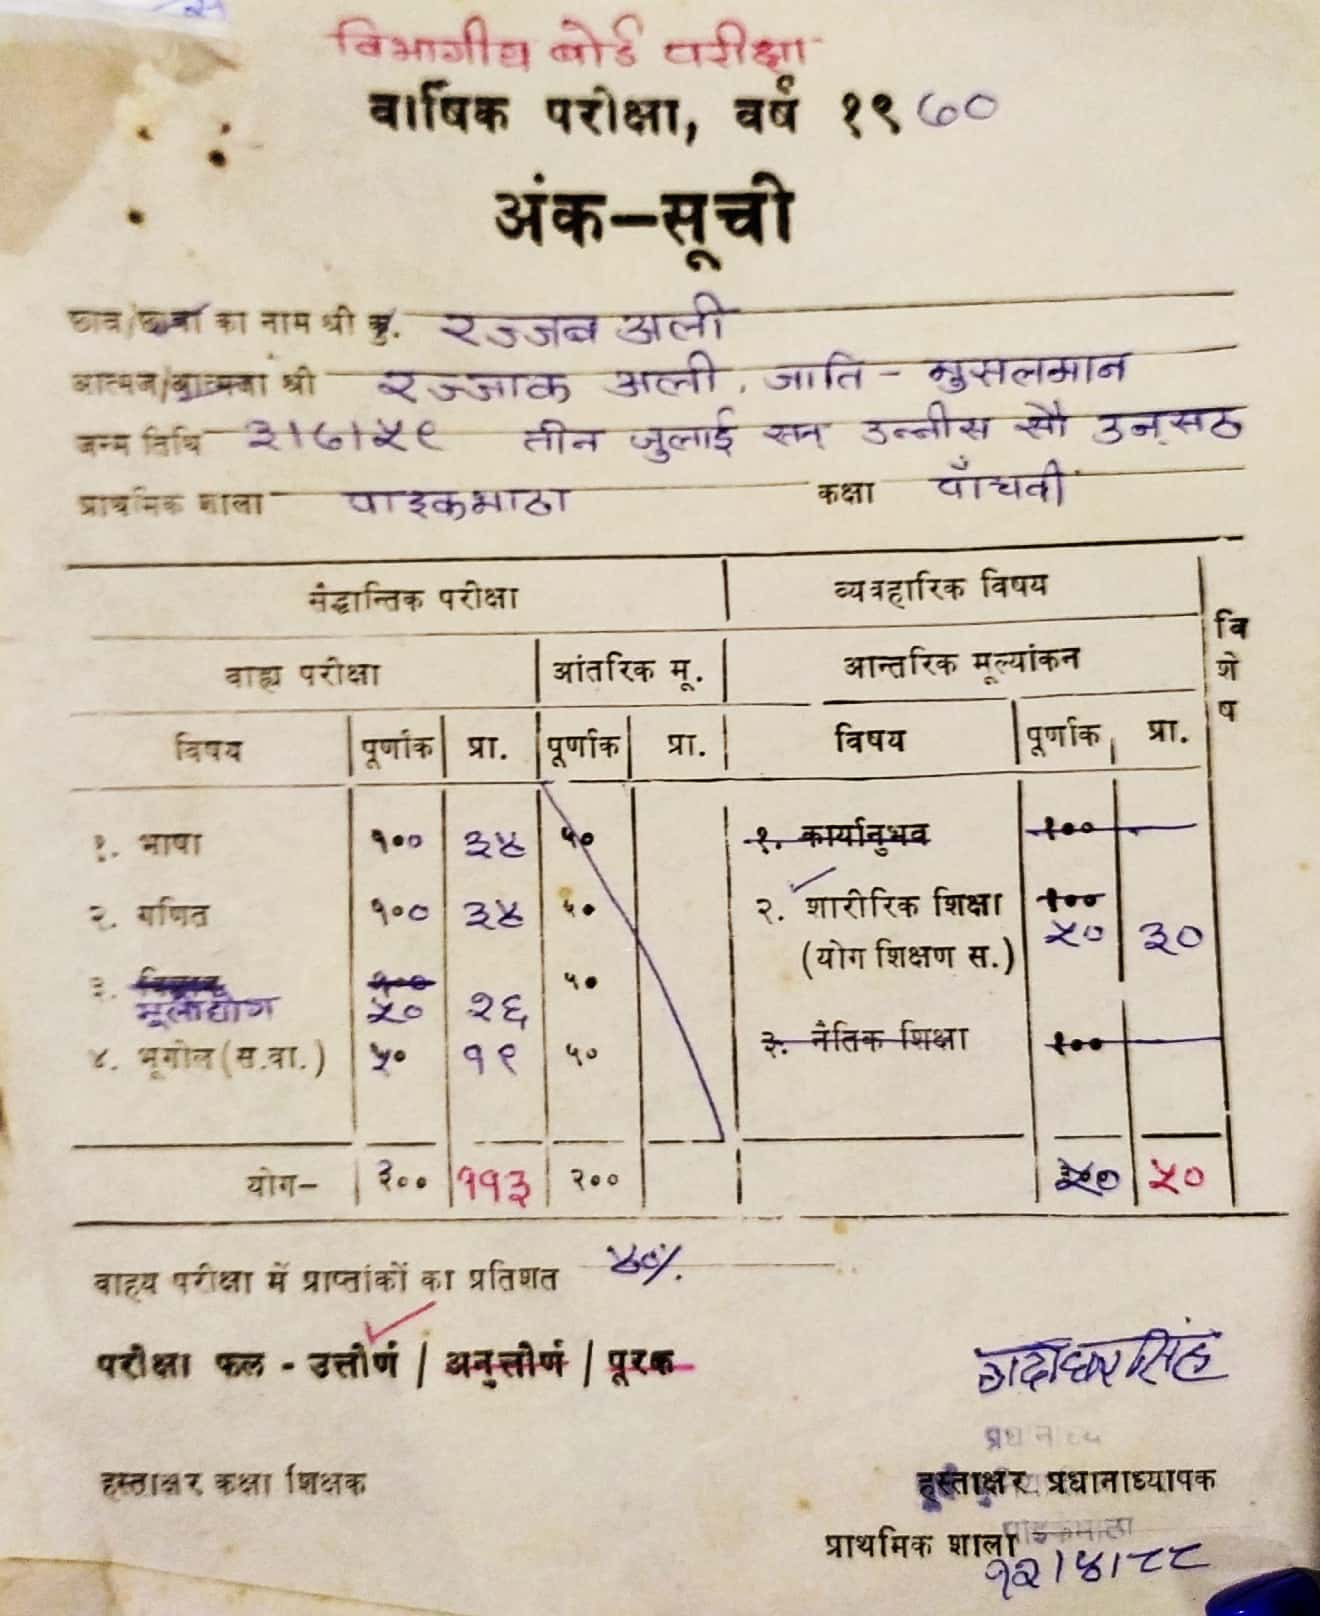 विभागीय बोर्ड परीक्षा
वार्षिक परीक्षा, वर्ष १९७०
अंक-सूची
छात्र/छात्रा का नाम श्री कु. रज्जब अली
आत्मज/आत्मजा श्री रज्जाक अली, जाति - मुसलमान
जन्म तिथि ३।७।५९ तीन जुलाई सन् उन्नीस सौ उन्सठ
प्राथमिक शाला पाइकभाठा कक्षा पाँचवी
सैद्धान्तिक परीक्षा व्यवहारिक विषय विशेष
वाह्य परीक्षा आंतरिक मू. आन्तरिक मूल्यांकन
विषय पूर्णांक प्रा. पूर्णांक प्रा. विषय पूर्णांक प्रा.
१. भाषा १०० ३४ ५० १. कार्यानुभव १००
२. गणित १०० ३४ ५० २. शारीरिक शिक्षा १००
(योग शिक्षण स.) ५० ३०
३. १०० ५०
मूलोद्योग ५० २६ ३. नैतिक शिक्षा १००
४. भूगोल (स.वा.) ५० १९ ५०
योग- ३०० ११३ २०० ५० ५०
वाह्य परीक्षा में प्राप्तांकों का प्रतिशत ४०%
परीक्षा फल - उत्तीर्ण / अनुत्तीर्ण / पूरक
गदाधर सिंह
हस्ताक्षर कक्षा शिक्षक हस्ताक्षर प्रधानाध्यापक
प्राथमिक शाला पाइकभाठा
१२।४।८८